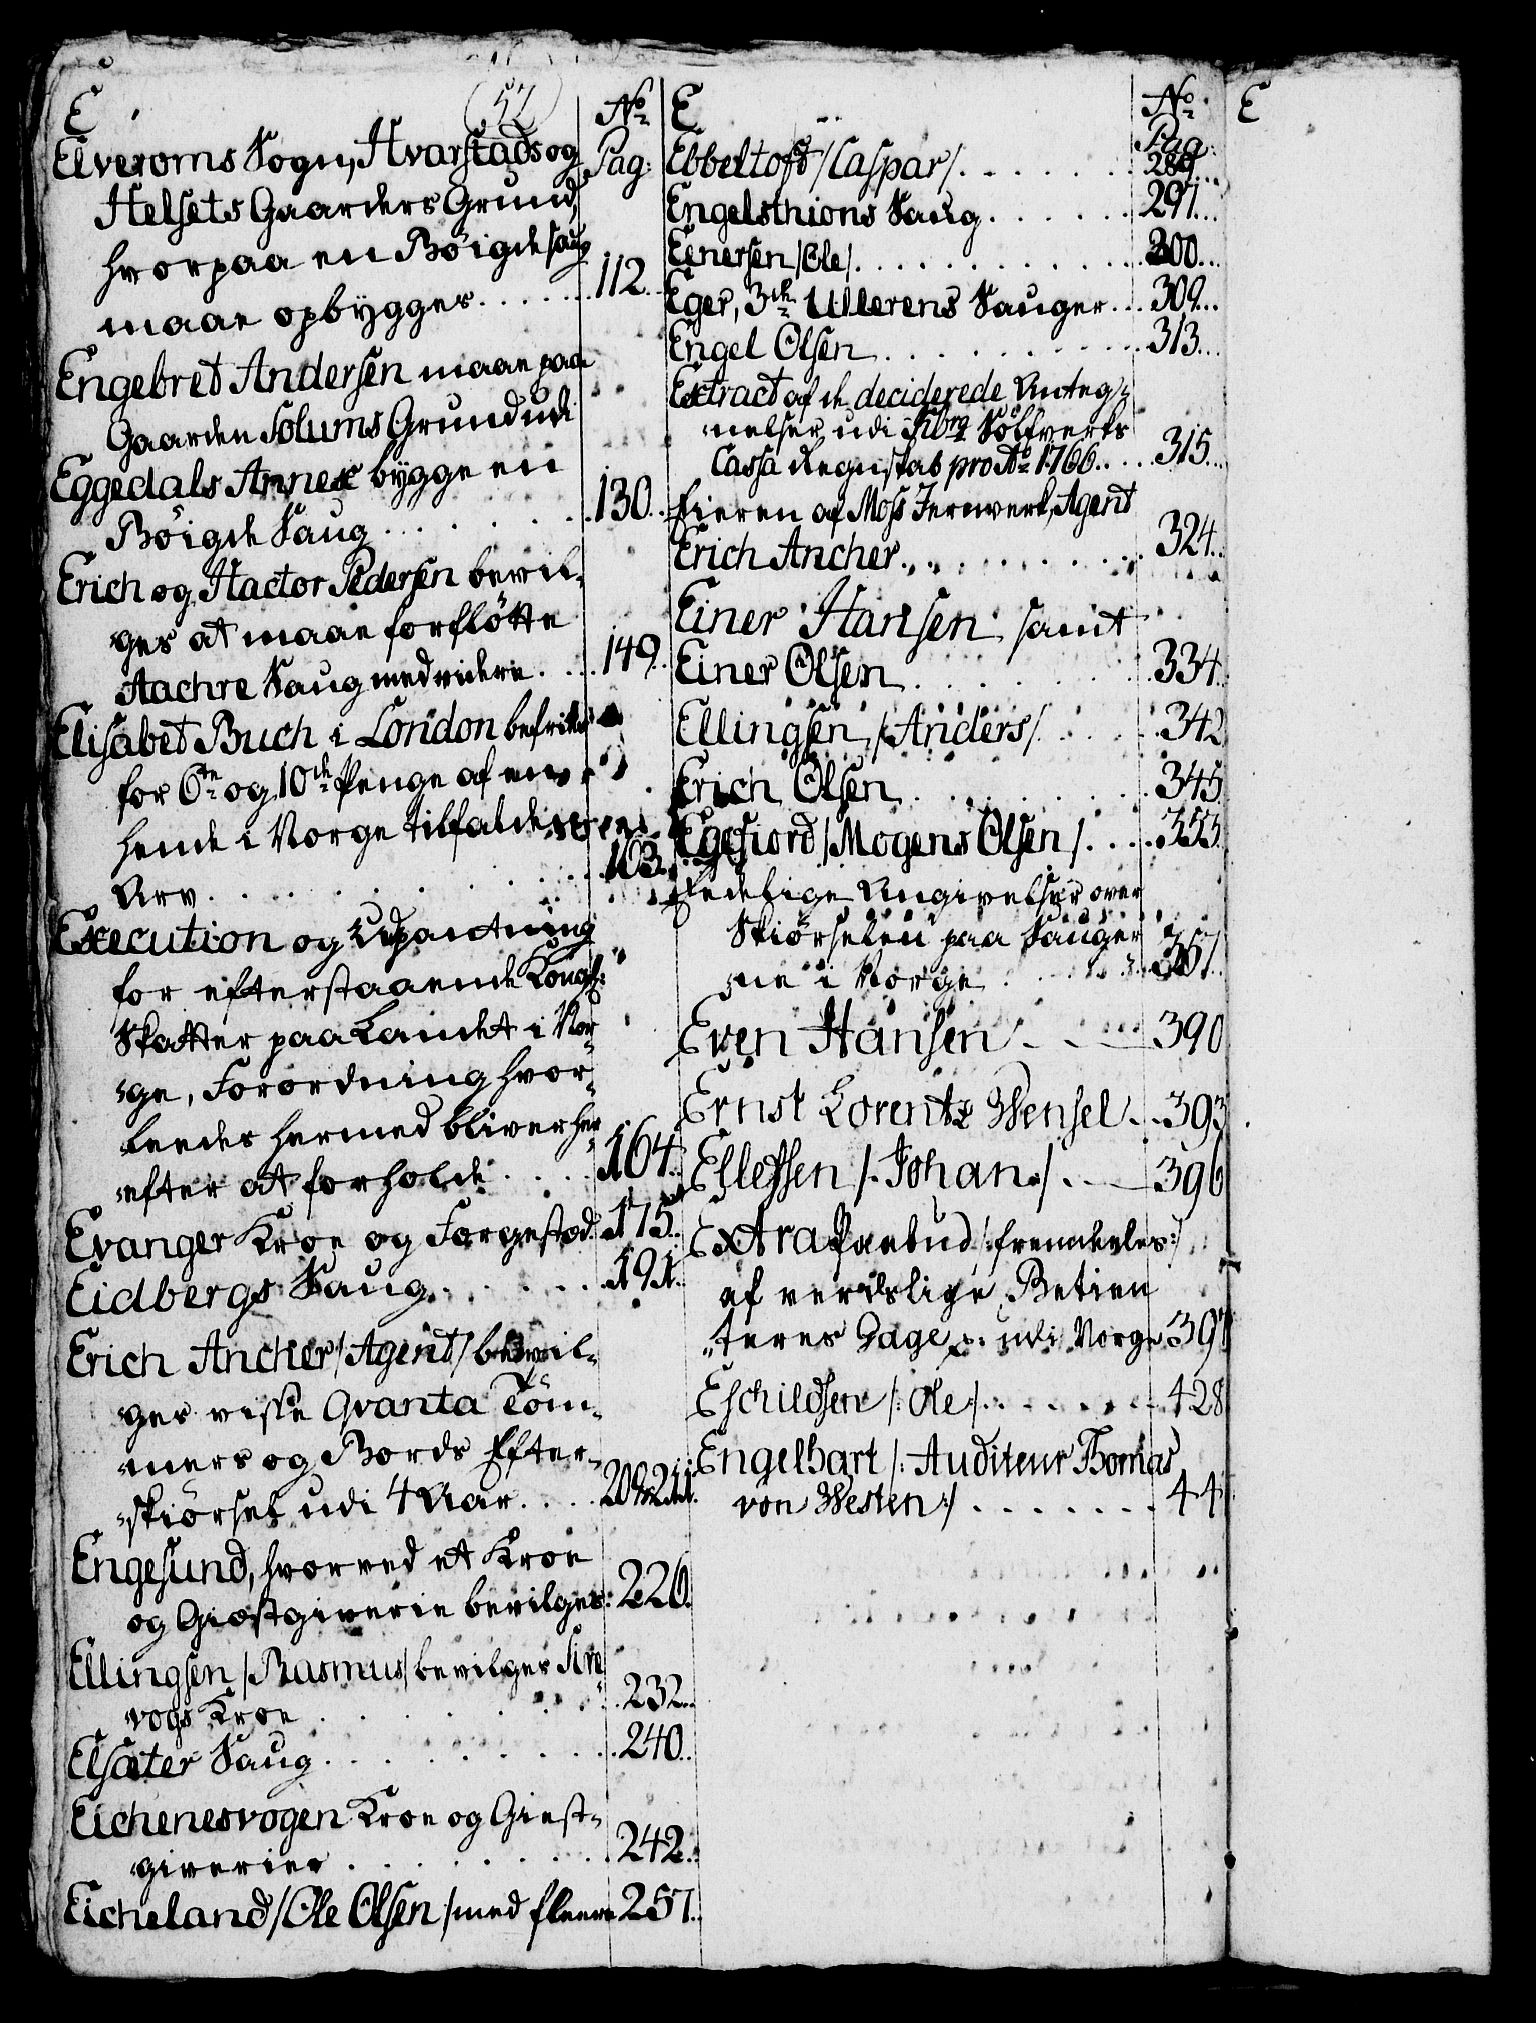 E
52
No
Pag:
Elveroms Sogn, Hvarstads og
Helsets Gaarders Grund,
hvorpaa en Böigde saug
maae opbygges . . . . . . . 112.
Engebret Andersen maae paa
Gaarden Solums Grund udi
Eggedals Annex bygge en
Böigde Saug . . . . . . 130.
Erich og Hactor Pedersen bevil-
ges at maae forflötte
Aachre Saug med videre . . . 149.
Elisabet Buch i London befries
for 6te og 10de Penge af en
hende i Norge tilfalden
Arv . . . . . . . . 163.
Execution og Udpantning
for efterstaaende Kongl:
Skatter paa Landet i Nor-
ge, Forordning hvor-
ledes hermed bliver her-
efter at forholde . . . . 164.
Evanger Kroe og Forgestad 175.
Eidbergs Saug . . . . . . 191.
Erich Ancher /Agent/ bevil-
ges visse Qvanta Töm-
mers og Bords Efter-
skiörsel udi 4 Aar . . . . 209. 211.
Engesund, hvorved et Kroe
og Giæstgiverie bevilges: 226.
Ellingsen /Rasmus/ bevilges Sire-
vogs Kroe . . . . . . 232.
Elsæter Saug . . . . . . . 240.
Eichenesvogen Kroe og Giest-
giverier . . . . . . . 242.
Eicheland /Ole Olsen/ med fleere 257.
E
No
Pag:
Ebbeltoft /Caspar/ . . . . . . . 289.
Engelsthions Saug . . . . . . 297.
Eenersen /Ole/ . . . . . . . . 300.
Eger, 3de Ullerens Sauger . . . 309.
Engel Olsen . . . . . . . . 313.
Extract af de deciderede Anteg-
nelser udi Kbrg Sölfverks
Cassa Regnskab pro Ao 1766 . . . 315.
Eieren af Moss Jernverk, Agent
Erich Ancher . . . . . . . . 324.
Einer Hansen samt
Einer Olsen . . . . . . . 334.
Ellingsen /Anders/ . . . . . 342
Erich Olsen . . . . . . . 345.
Egefiord /Mogens Olsen/ . . . . 355.
Eedelige Angivelser over
Skiörselen paa Sauger-
ne i Norge . . . . . 357.
Even Hansen . . . 390
Ernst Lorentz Wensel . . 393
Ellefsen /: Johan :/ . . 396
Extra Paabud /: fremdeles :/
af verdslige Betien-
teres Gage p. udi Norge 397
Eschildsen /: Ole :/ . . . . . . 428
Engelhart /: Auditeur Thomas
von Westen :/ . . . . . . . 44
E